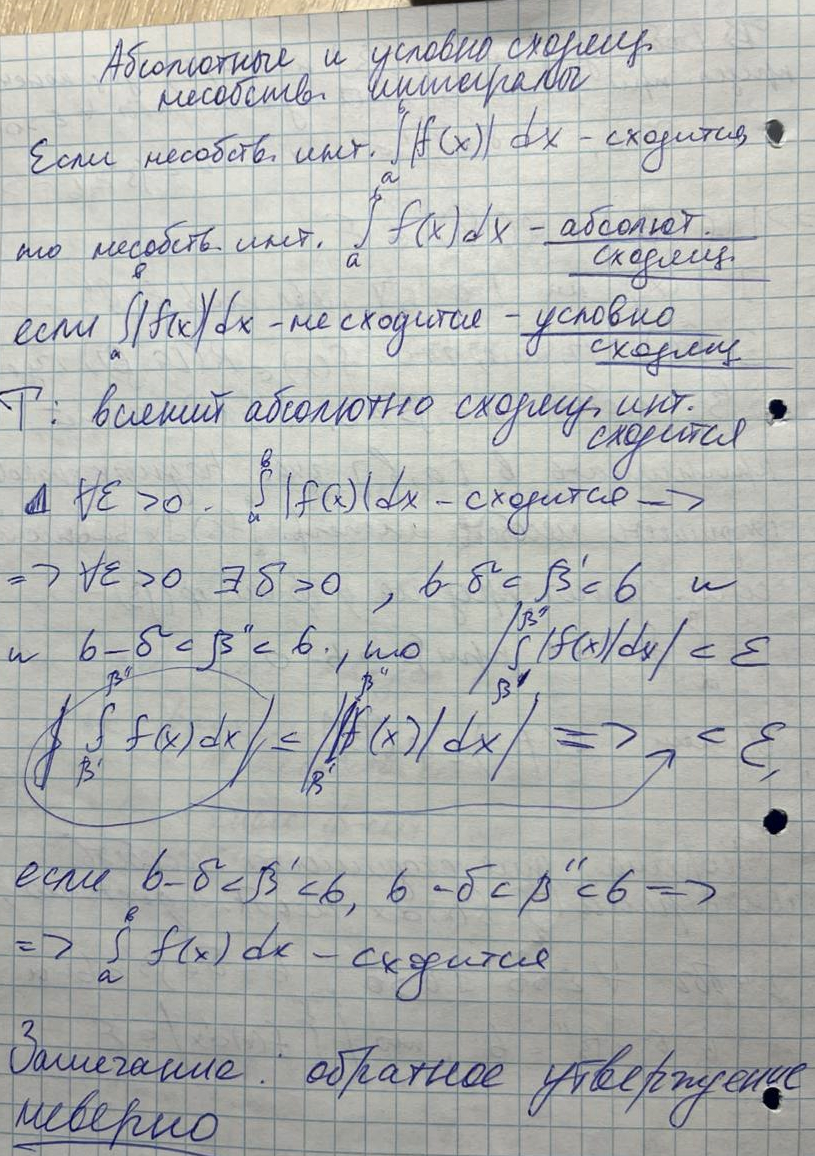 Абсолютные и условно сходящ.
несобств. интегралы
Если несобств. инт. ∫ₐᵇ|f(x)| dx – сходится,
то несобств. инт. ∫ₐᵇ f(x)dx – абсолют.
сходящ.
если ∫ₐᵇ|f(x)|dx – не сходится – условно
сходящ.
T: всякий абсолютно сходящ. инт.
сходится
∀ε >0. ∫ₐᵇ |f(x)|dx – сходится =>
=> ∀ε >0 ∃δ >0 , b-δ < β' < b и
и b-δ < β'' < b, то |∫_β'^β'' |f(x)|dx| < ε
|∫_β'^β'' f(x)dx| ≤ |∫_β'^β'' |f(x)|dx| => < ε,
если b-δ<β'<b, b-δ<β''<b =>
=> ∫ₐᵇ f(x) dx – сходится
Замечание: обратное утверждение
неверно